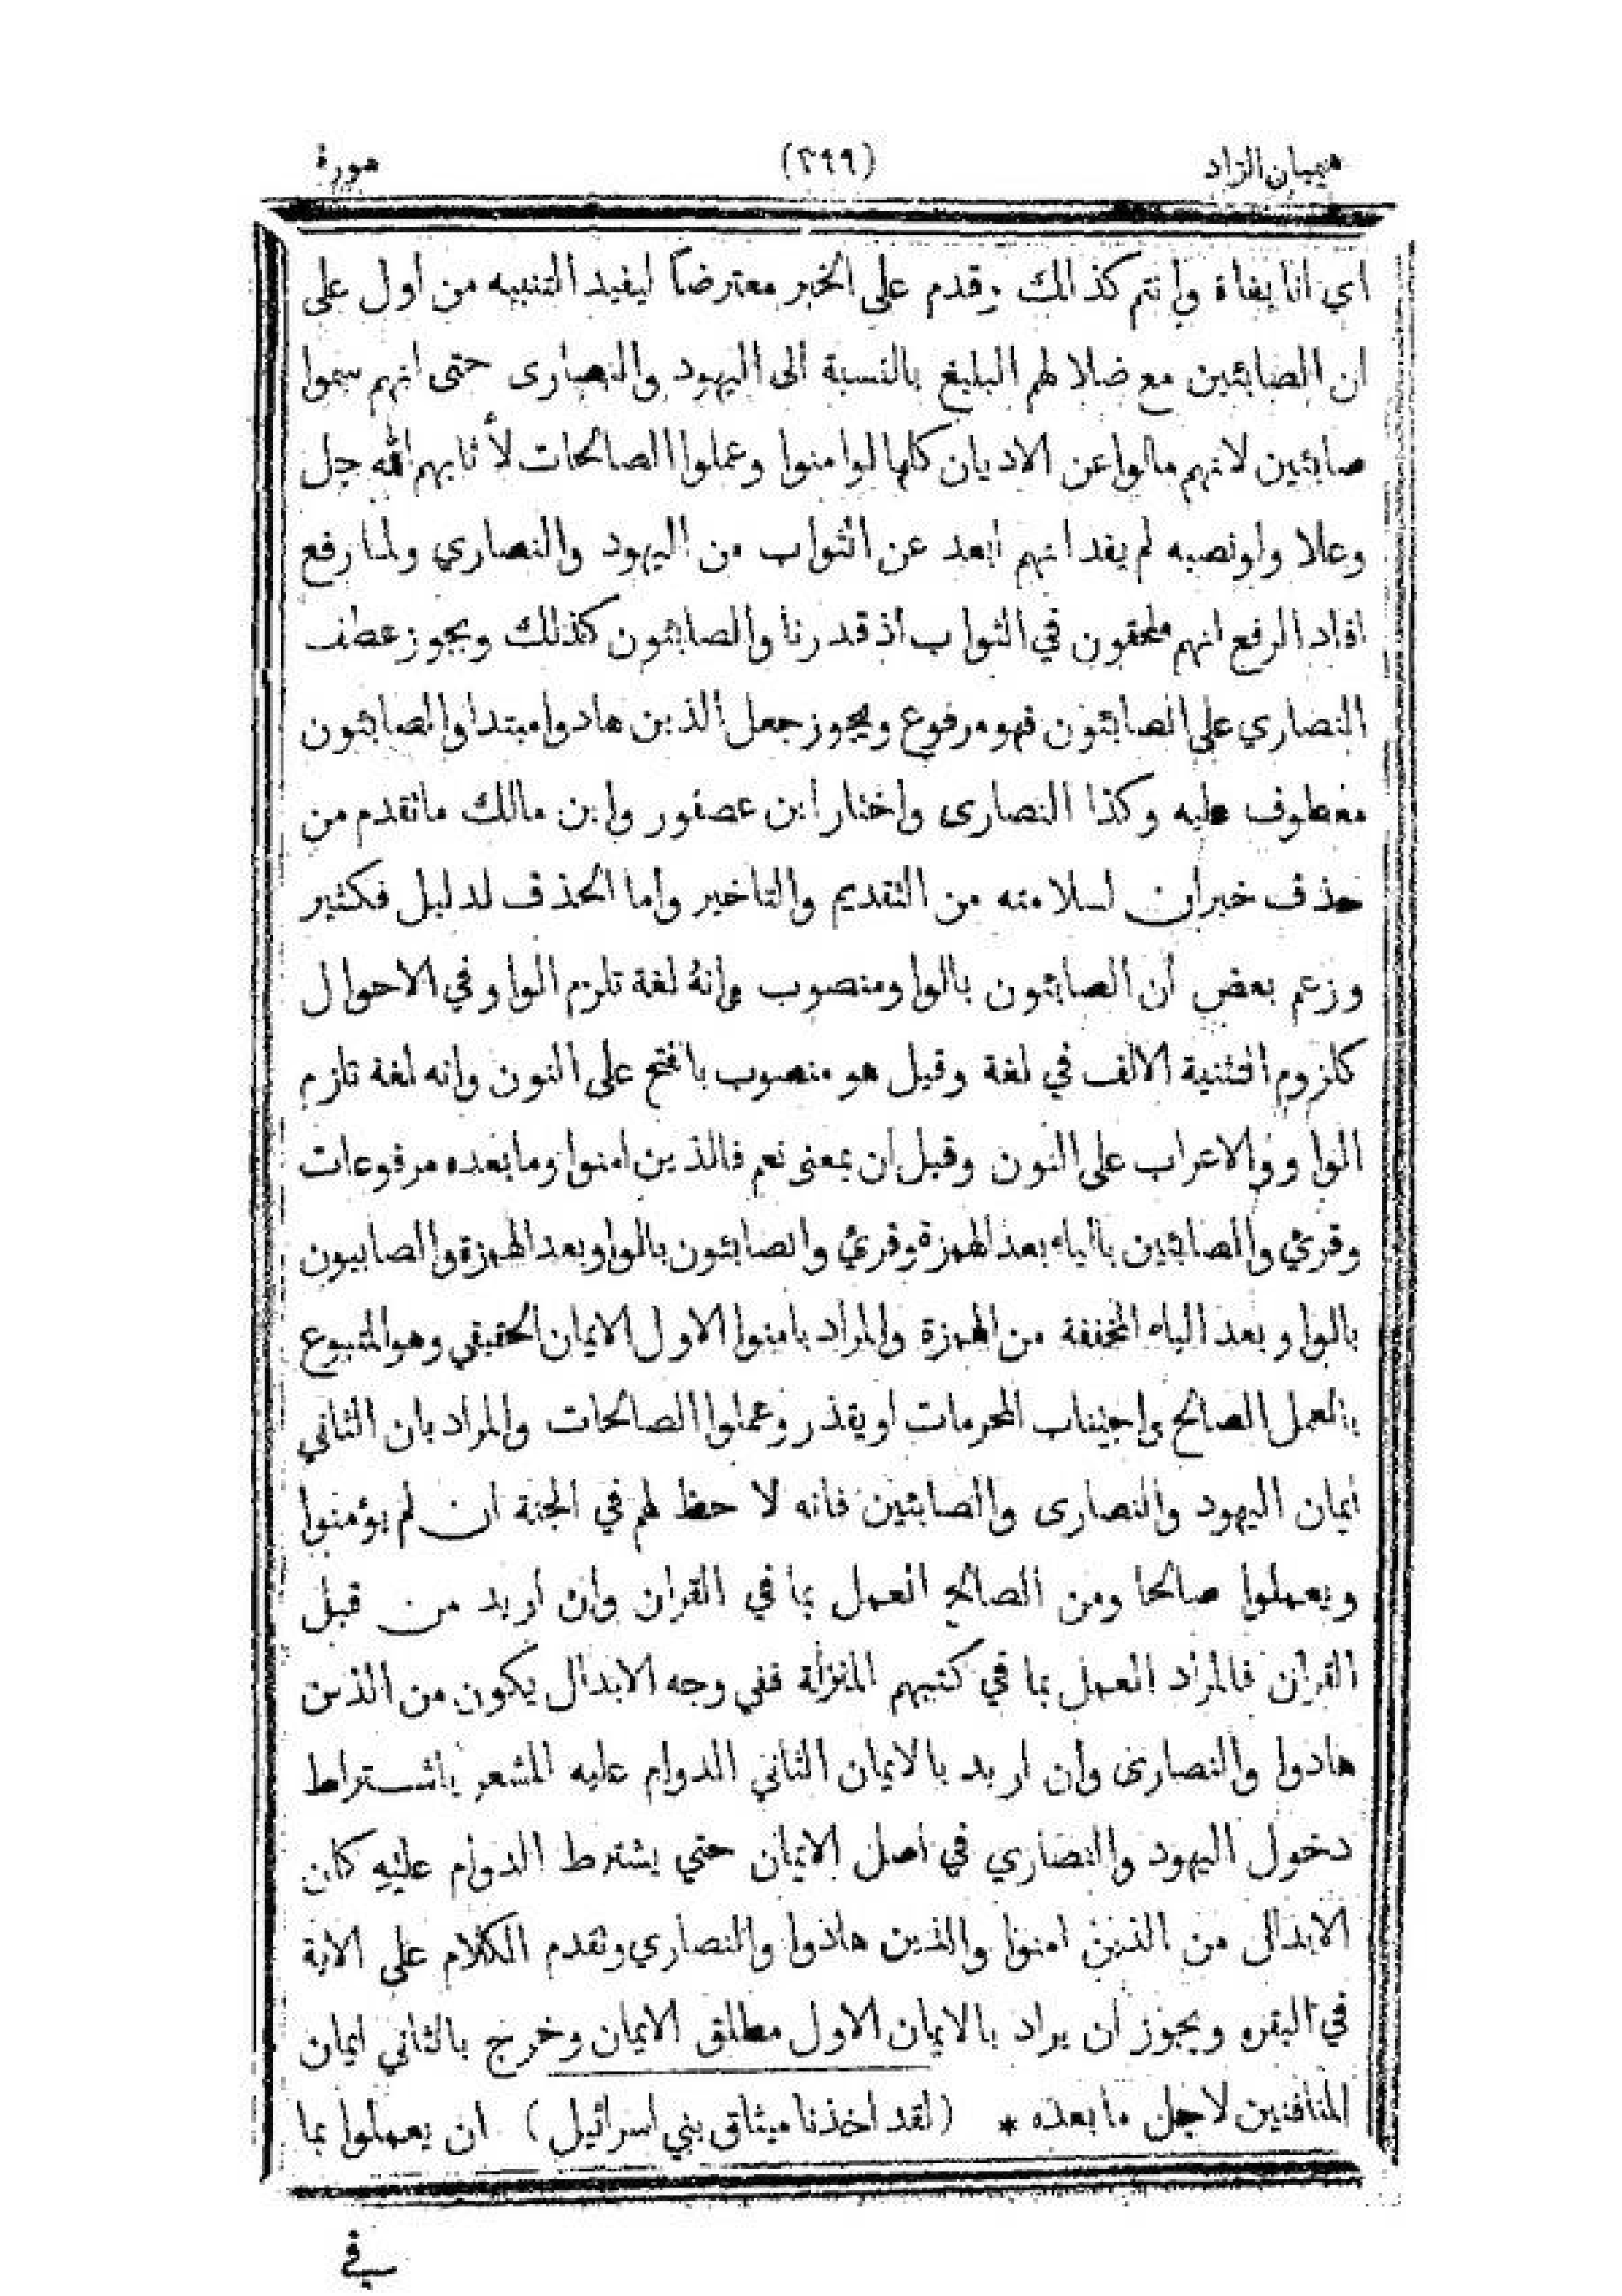 هميان الزاد (٢٩٩) سورة
اي انا بغاة وانتم كذالك وقدم على الخبر معترضا ليفيد التنبيه من اول على
ان الصابئين مع ضلالهم البليغ بالنسبة الى اليهود والنصارى حتى انهم سموا
صابئين لانهم مالوا عن الاديان كلها لوامنوا وعملوا الصالحات لأثابهم الله جل
وعلا ولونصبه لم يفد انهم ابعد عن الثواب من اليهود والنصاري ولما رفع
افاد الرفع انهم ملحقون في الثواب اذ قدرنا والصابئون كذلك ويجوز عطف
النصاري على الصابئون فهو مرفوع ويجوز جعل الذين هادوا مبتدا والصابئون
معطوف عليه وكذا النصارى واختار ابن عصفور وابن مالك ماتقدم من
حذف خبران لسلامته من التقديم والتاخير واما الحذف لدليل فكثير
وزعم بعض ان الصابئون بالواو منصوب وانهُ لغة تلزم الواو في الاحوال
كلزوم التثنية الالف في لغة وقيل هو منصوب بالفتح على النون وانه لغة تلزم
الواو والاعراب على النون وقيل ان بمعنى نعم فالذين امنوا وما بعده مرفوعات
وقرئ والصابئين بالياء بعد الهمزة وقرئ والصابئون بالواو بعد الهمزة والصابيون
بالواو بعد الياء المخففة من الهمزة والمراد بامنوا الاول الايمان الحقيقي وهو المتبوع
بالعمل الصالح واجتناب المحرمات او يقدر وعملوا الصالحات والمراد بان الثاني
ايمان اليهود والنصارى والصابئين فانه لا حظ لهم في الجنة ان لم يؤمنوا
ويعملوا صالحا ومن الصالح العمل بما في القران وان اريد من قبل
القران فالمراد العمل بما في كتبهم المنزلة ففي وجه الابدال يكون من الذين
هادوا والنصارى وان اريد بالايمان الثاني الدوام عليه المشعر باشتراط
دخول اليهود والنصاري في اصل الايمان حتي يشترط الدوام عليه كان
الابدال من الذين امنوا والذين هادوا والنصاري وتقدم الكلام على الاية
في البقره ويجوز ان يراد بالايمان الاول مطلق الايمان وخرج بالثاني ايمان
المنافنين لاجل ما بعده * (لقد اخذنا ميثاق بني اسرائيل) ان يعملوا بما
في